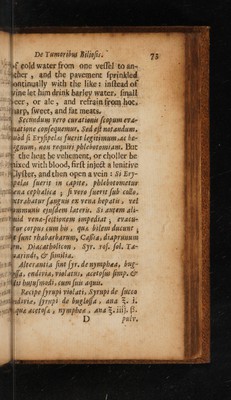 De Tumoribus Biliosis. 73
of cold water from one vessel to an-
other, and the pavement sprinkled
continually with the like: instead of
wine let him drink barley water. small
beer, or ale, and refrain from hot.
sharp, sweet, and fat meats.
Secundum vero curationis scopum eva-
cuatione consequemur. Sed est notandum,
quod si Erysipelas fuerit legitimum ac be-
nignum, non requirit phlebotomiam. But
if the heat be vehement, or choller be
mixed with blood, first inject a lenitive
Clyster, and then open a vein: Si Ery-
sipelas fuerit in capite, phlebotometur
vena cephalica; si vero fuerit sub collo,
extrahatur sanguis ex vena hepatis, vel
communis ejusdem lateris. Si autem ali-
quid vena-sectionem impediat, evacu-
etur corpus cum his, quæ bilem ducunt,
ut sunt rhabarbarum, Cassia, diaprunum
Diacatholicon, Syr. ros. sol. Ta-
marindi, & similia.
Alterantia sint syr. de nymphæa, bug-
lossa. endivia, violatus, acetosus simp. &
alii hujusmodi, cum suis aquis.
Recipe syrupi violati, Syrupi de succo
endiviæ, syrupi de buglossa, ana ℥. i.
aquæ acetosæ, nymphæa, ana ℥. iiij. ß.
D pulv.